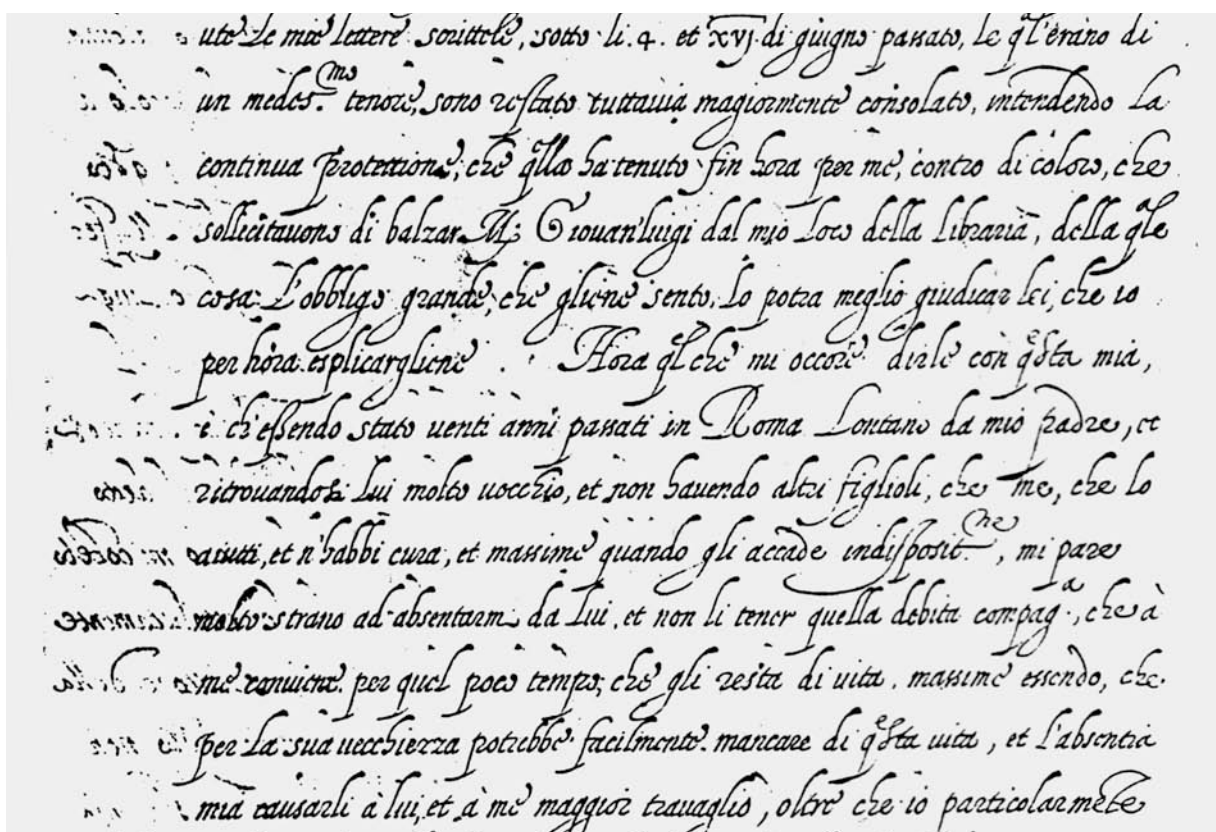 ute le mie lettere scrittele, sotto li .4. et xvj di giugno passato, le q'l'erano di
un medes.mo tenore, sono restato tuttauia magiormente consolato, intendendo la
continua protettione, che q'lla ha tenuto fin hora per me, contro di coloro, che
sollicitauono di balzar M. Giouan'luigi dal mio loco della libraria, della q'le
cosa l'obbligo grande, che gliene sento, lo potra meglio giudicar lei, che io
per hora esplicargliene . Hora q'l che mi occore dirle con q'sta mia,
è ch'essendo stato uenti anni passati in Roma lontano da mio padre, et
ritrouandosi lui molto uecchio, et non hauendo altri figlioli, che me, che lo
aiuti, et n'habbi cura, et massime quando gli accade indisposit.ne, mi pare
molto strano ad absentarmi da lui, et non li tener quella debita compag.a, che à
me conuiene per quel poco tempo, che gli resta di uita. massime essendo, che
per la sua uecchiezza potrebbe facilmente mancare di q'sta uita, et l'absentia
mia causarli à lui, et à me maggior trauaglio, oltre che io particolarmete